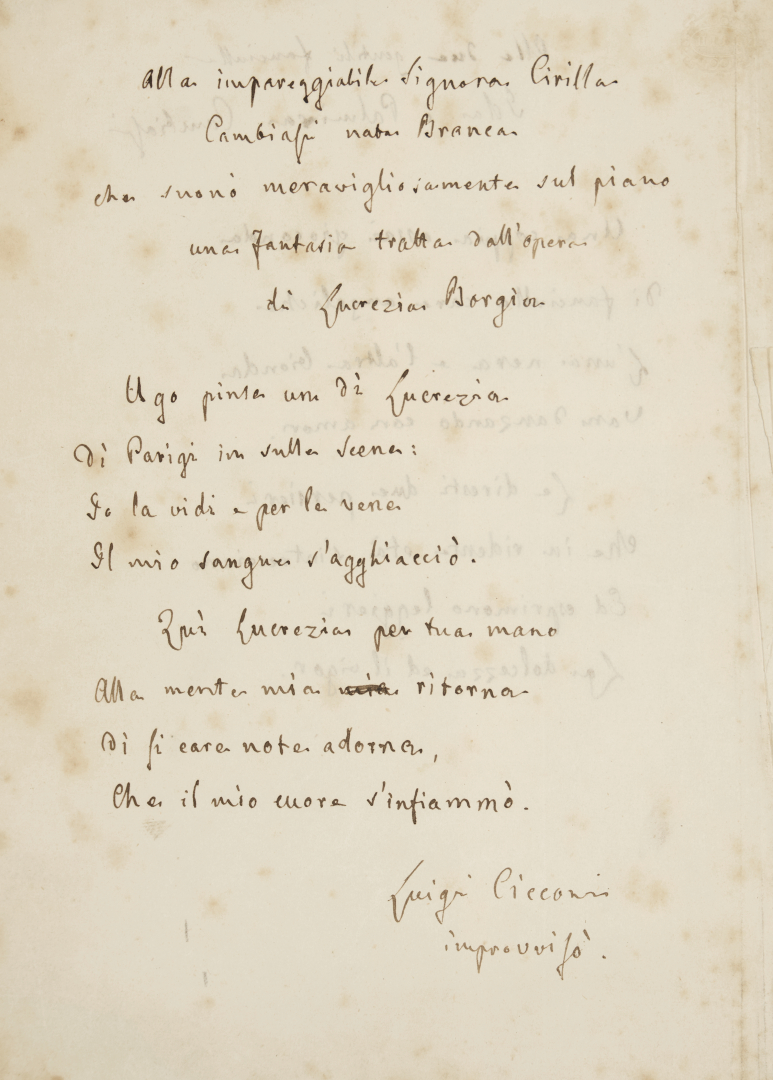 Alla impareggiabile Signora Cirilla
Cambiasi nata Branca
che suonò meravigliosamente sul piano
una Fantasia tratta dall'opera
di Lucrezia Borgia
Ugo pinse un dì Lucrezia
Di Parigi in sulle scene:
Io la vidi e per le vene
Il mio sangue s'agghiacciò.
Qui Lucrezia per tua mano
Alla mente mia mia ritorna
Di si care note adorna,
Che il mio cuore s'infiammò.
Luigi Cicconi
improvvisò.